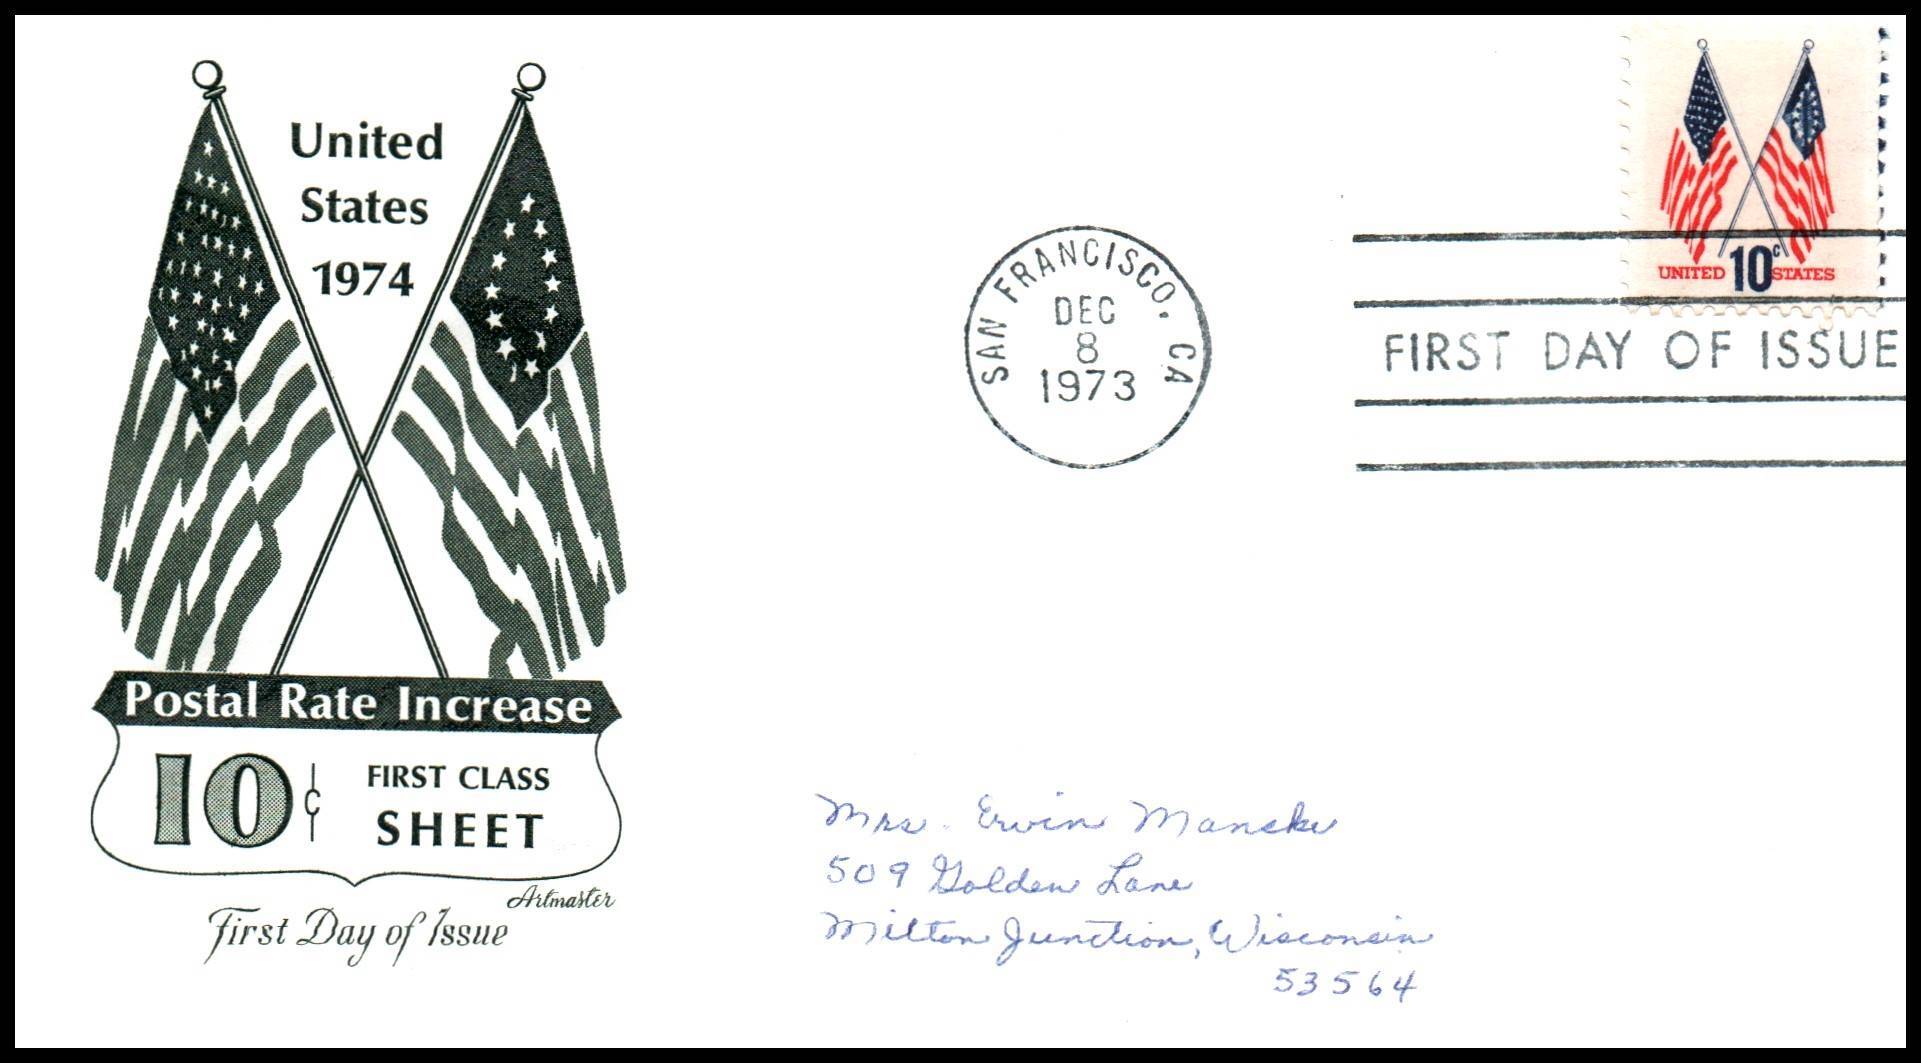 United
States
1974
Postal Rate Increase
10¢ FIRST CLASS
SHEET
Artmaster
First Day of Issue
SAN FRANCISCO, CA
DEC
8
1973
10c
UNITED STATES
FIRST DAY OF ISSUE
Mrs. Ervin Manske
509 Golden Lane
Milton Junction, Wisconsin
53564